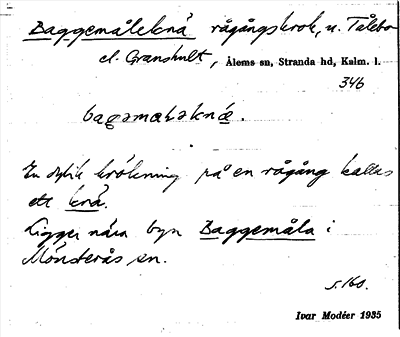 Baggemåleknä rågångskrok, u. Tålebo
el. Granshult, Ålems sn, Stranda hd, Kalm. l.
346
bagəmaləknä.
En dylik krökning på en rågång kallas
ett knä.
Ligger nära byn Baggemåla i
Mönsterås sn.
s. 160.
Ivar Modéer 1935